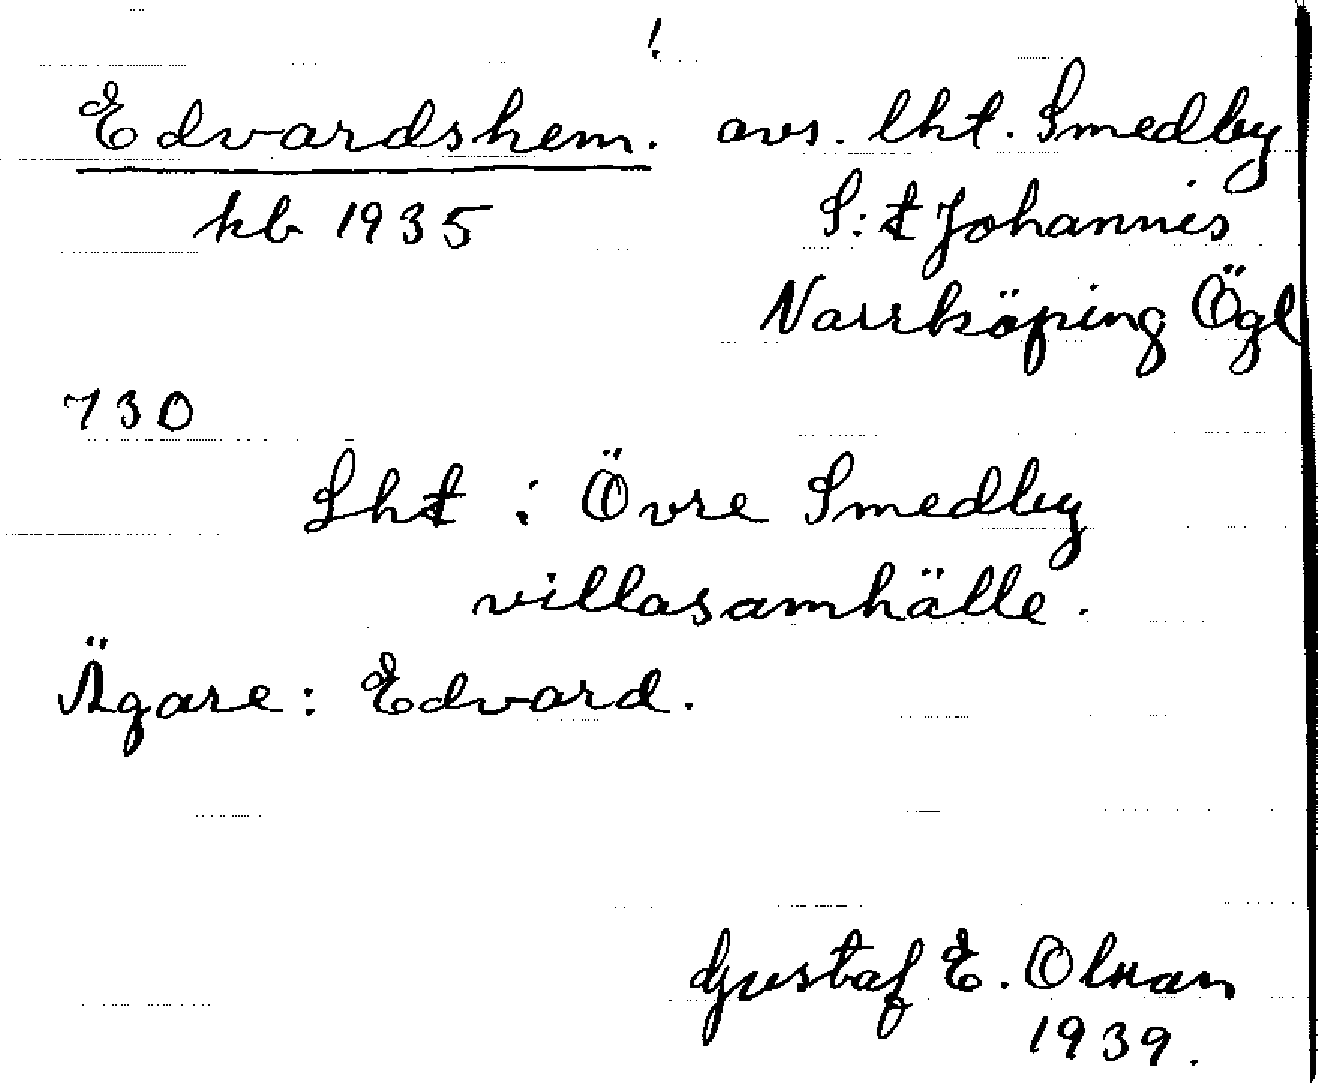 !
Edvardshem. avs. lht. Smedby
kb 1935 S:t Johannis
Norrköping Ögl
730
Lht : Övre Smedby
villasamhälle.
Ägare: Edvard.
Gustaf E. Olsson
1939.